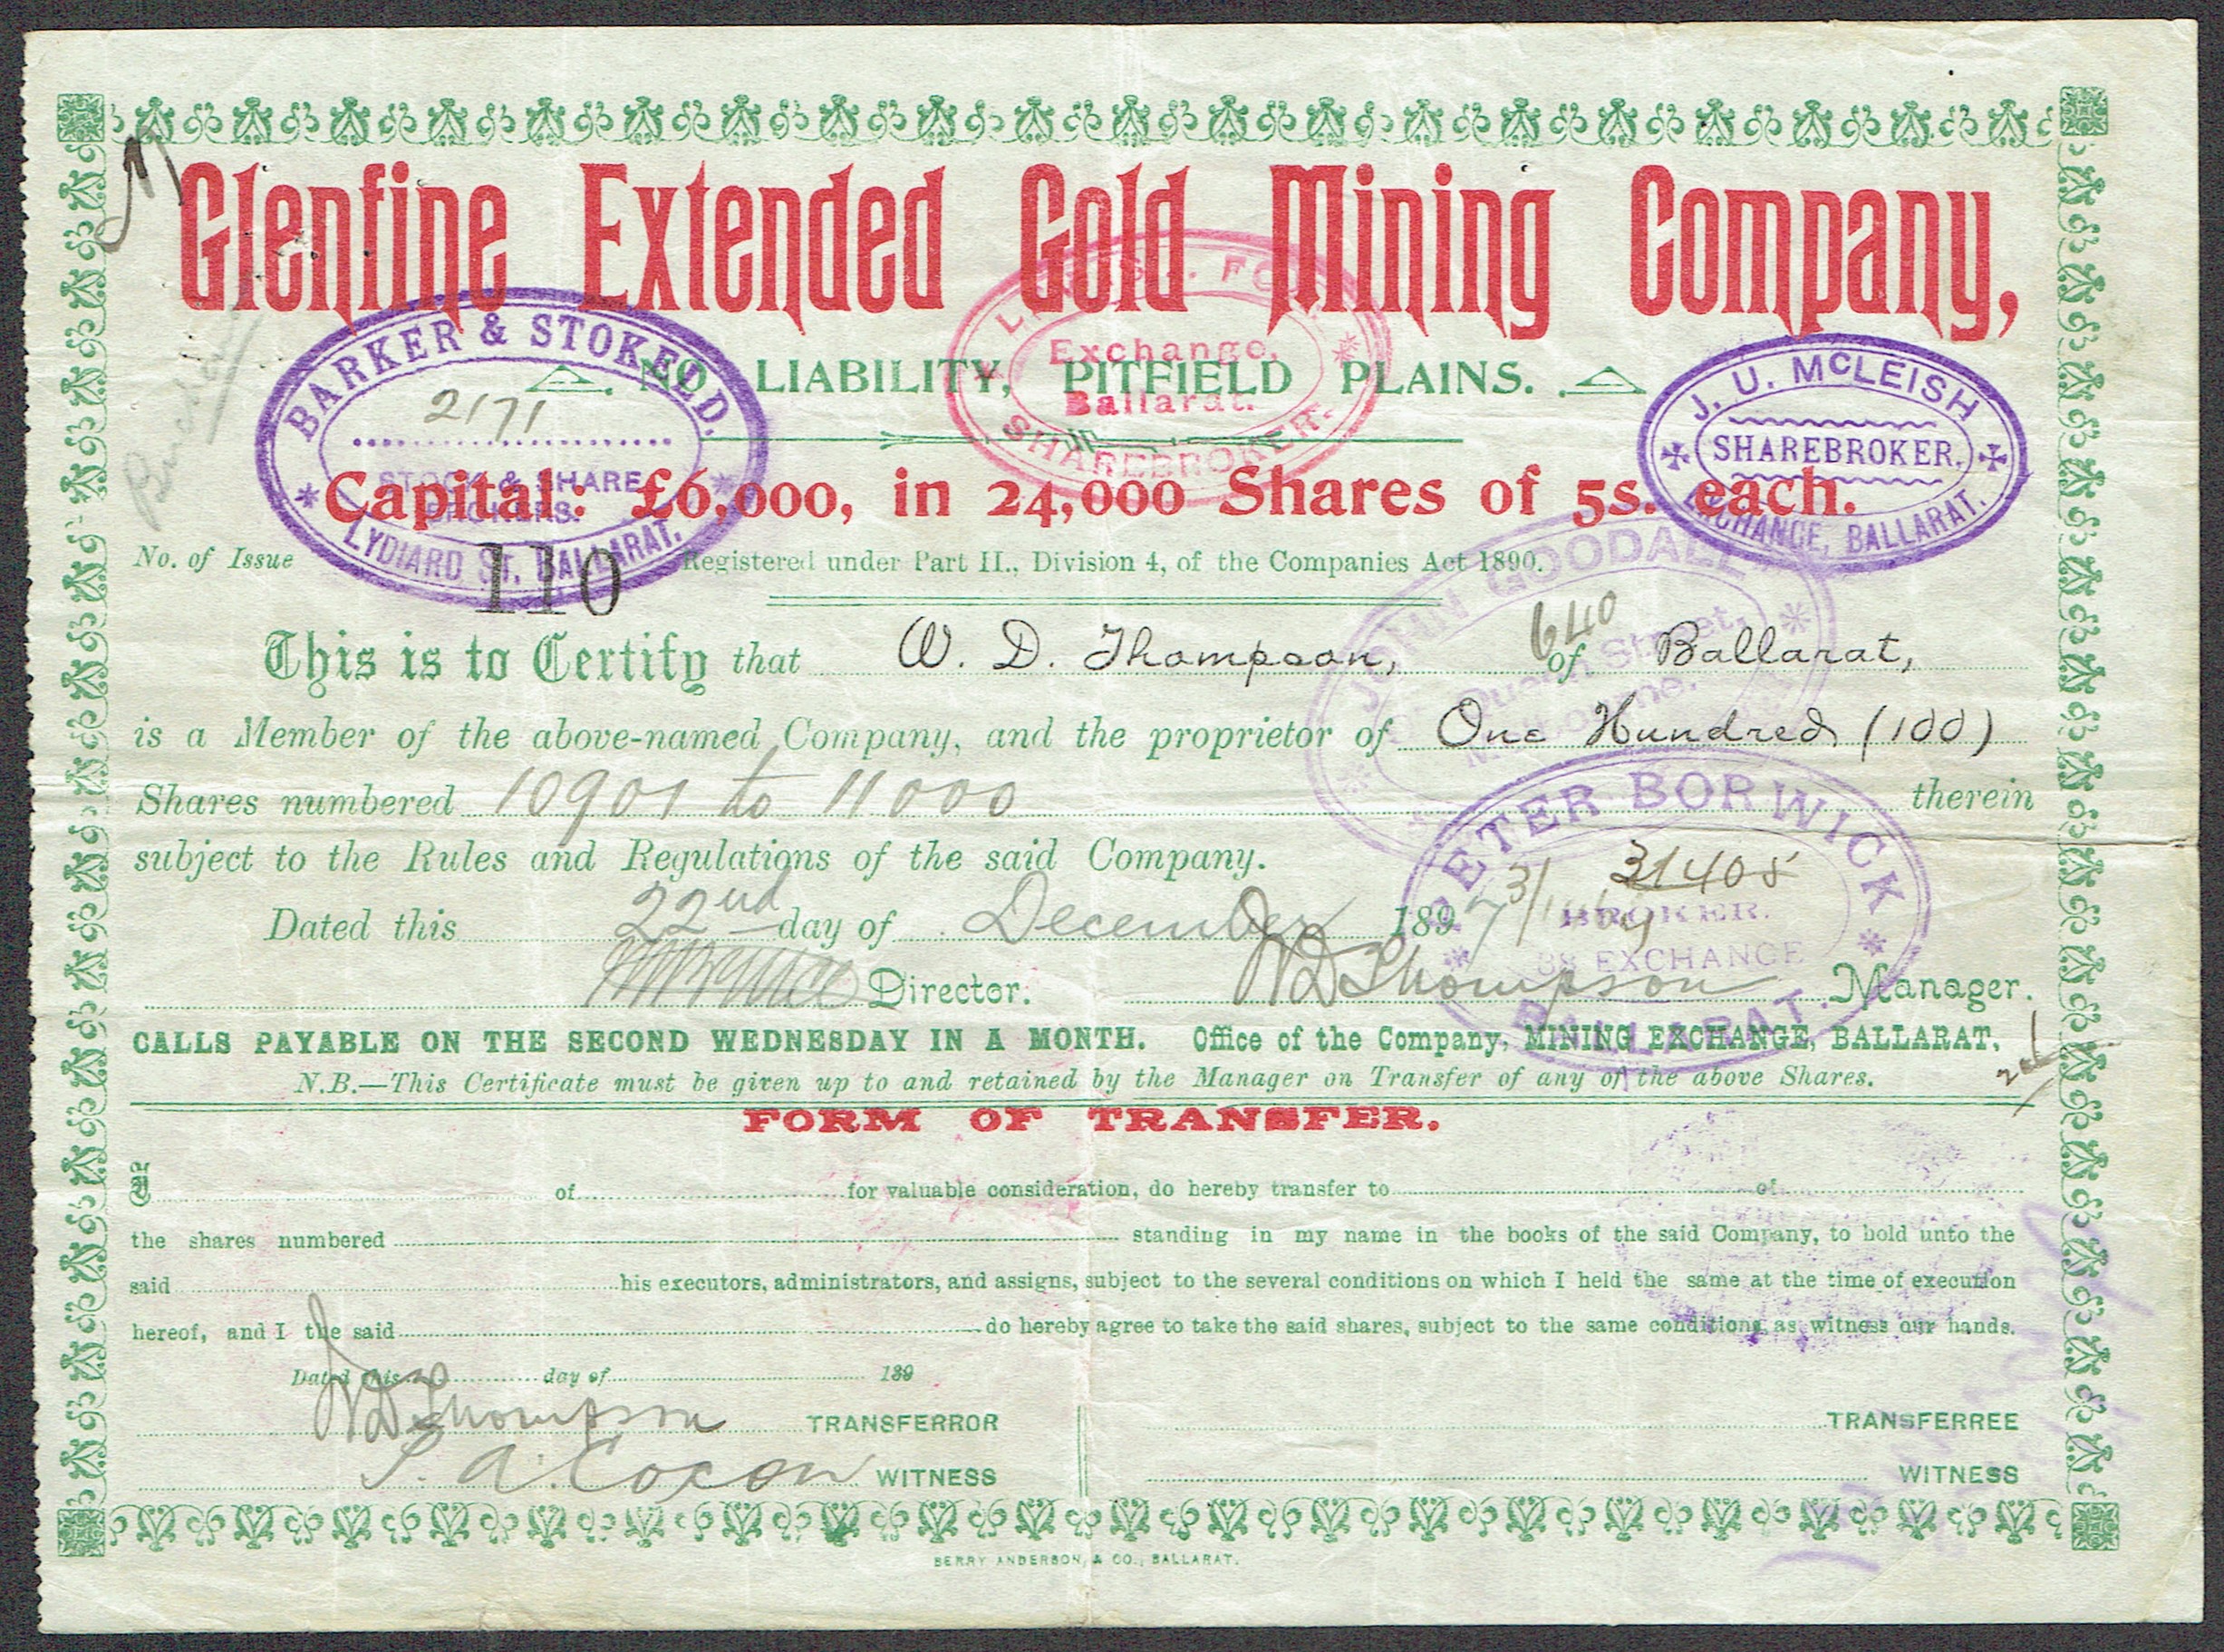 Glenfine Extended Gold Mining Company,
NO LIABILITY, PITFIELD PLAINS.
BARKER & STOKELD.
2171
STOCK & SHARE
BROKERS.
LYDIARD ST, BALLARAT.
Exchange,
Ballarat.
SHAREBROKER.
J. U. McLEISH
SHAREBROKER.
EXCHANGE, BALLARAT.
Capital: £6,000, in 24,000 Shares of 5s. each.
No. of Issue 110 Registered under Part II., Division 4, of the Companies Act 1890.
JOHN GOODALL
Queen Street,
Melbourne.
640
This is to Certify that W. D. Thompson, of Ballarat,
is a Member of the above-named Company, and the proprietor of One Hundred (100)
Shares numbered 10901 to 11000 therein
subject to the Rules and Regulations of the said Company.
PETER BORWICK
31405
BROKER.
38 EXCHANGE
BALLARAT.
Dated this 22nd day of December 1897
Director. W D Thompson Manager.
CALLS PAYABLE ON THE SECOND WEDNESDAY IN A MONTH. Office of the Company, MINING EXCHANGE, BALLARAT.
N.B.—This Certificate must be given up to and retained by the Manager on Transfer of any of the above Shares.
FORM OF TRANSFER.
I of for valuable consideration, do hereby transfer to of
the shares numbered standing in my name in the books of the said Company, to hold unto the
said his executors, administrators, and assigns, subject to the several conditions on which I held the same at the time of execution
hereof, and I the said do hereby agree to take the said shares, subject to the same conditions, as witness our hands.
Dated this day of 189
W D Thompson TRANSFERROR TRANSFERREE
WITNESS WITNESS
BERRY ANDERSON, & CO., BALLARAT.